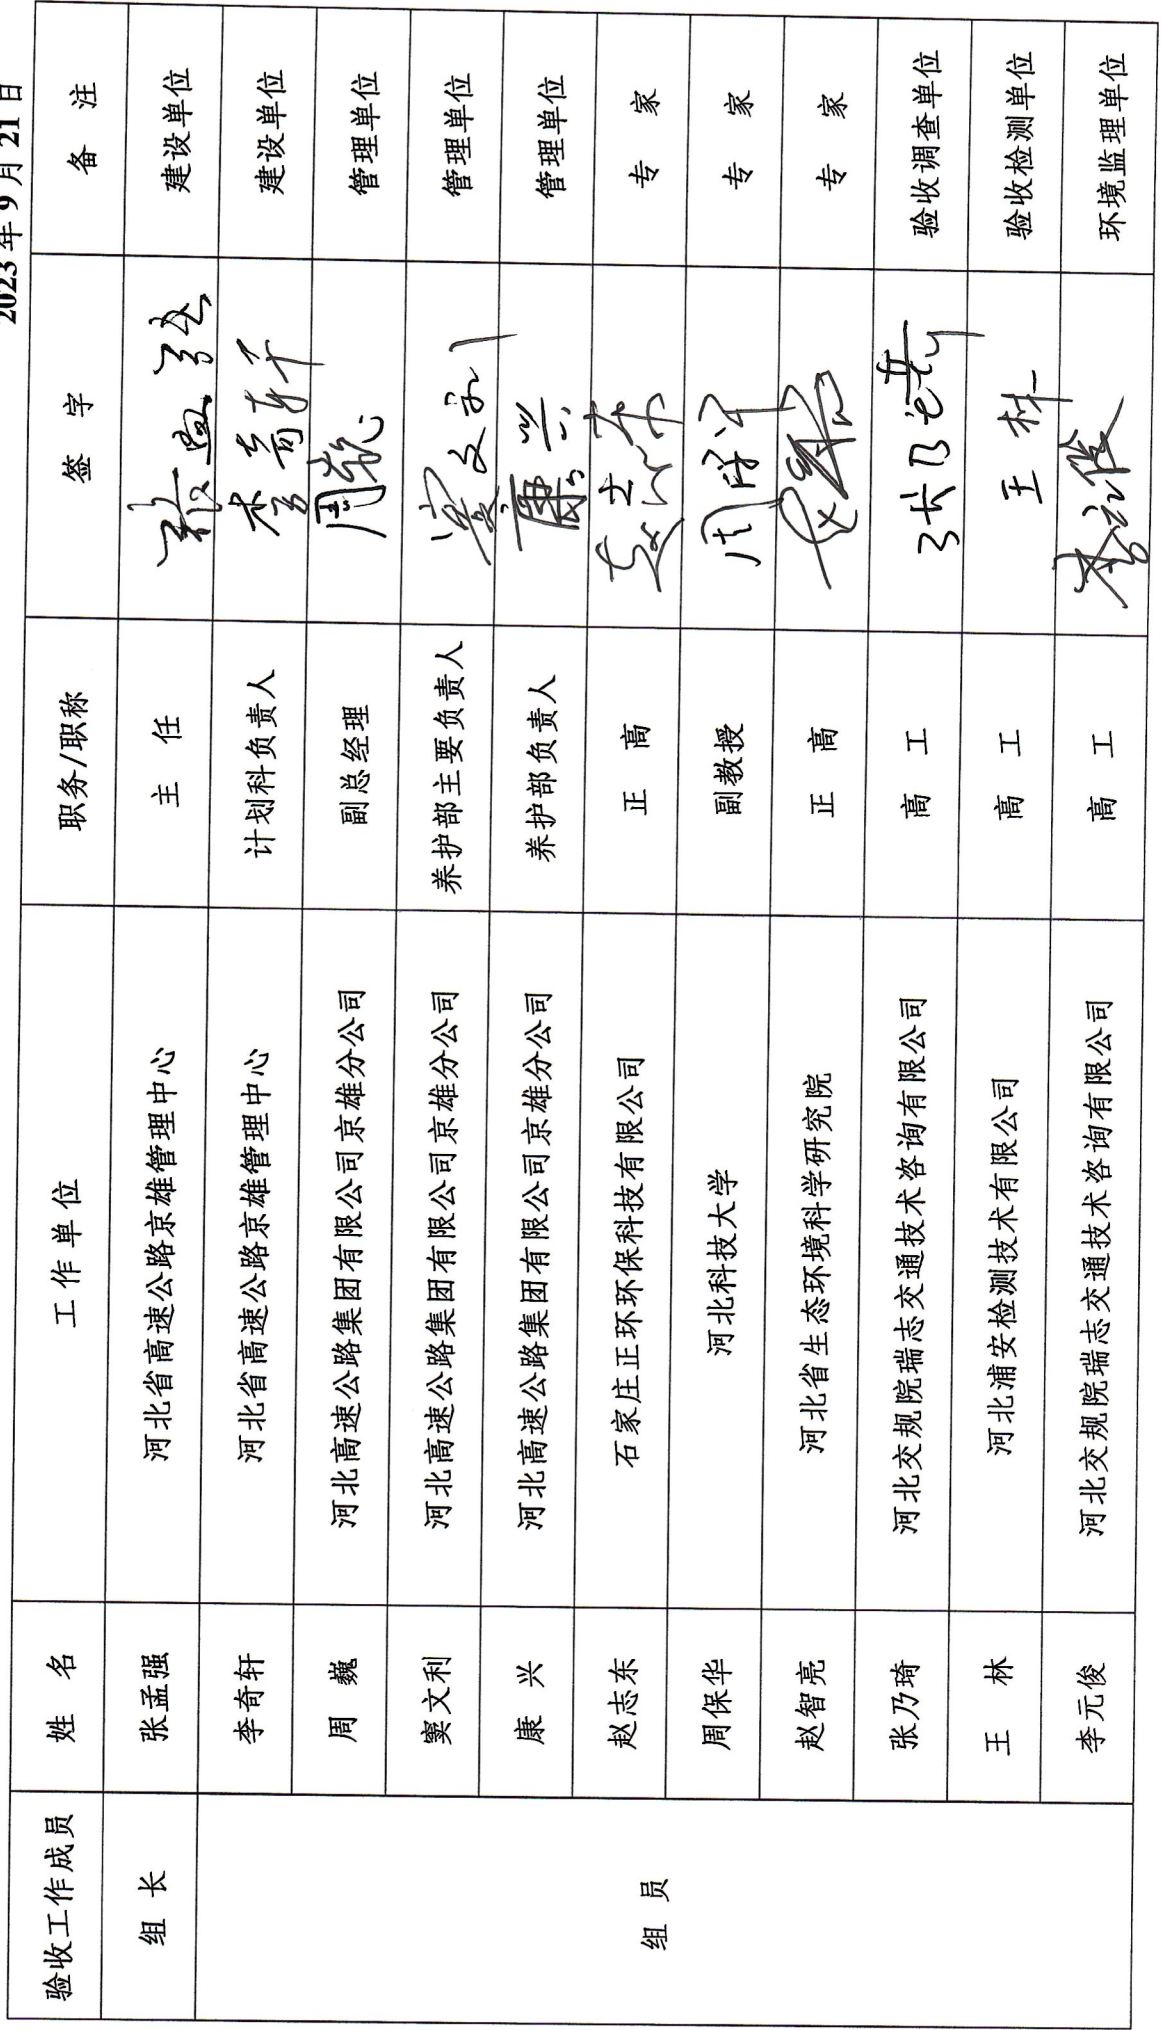 2023 年 9 月 21 日
验收工作成员 姓 名 工 作 单 位 职务/职称 签 字 备 注
组 长 张孟强 河北省高速公路京雄管理中心 主 任 张孟强 建设单位
组 员 李奇轩 河北省高速公路京雄管理中心 计划科负责人 李奇轩 建设单位
周 巍 河北高速公路集团有限公司京雄分公司 副总经理 周巍 管理单位
窦文利 河北高速公路集团有限公司京雄分公司 养护部主要负责人 窦文利 管理单位
康 兴 河北高速公路集团有限公司京雄分公司 养护部负责人 康兴 管理单位
赵志东 石家庄正环环保科技有限公司 正 高 赵志东 专 家
周保华 河北科技大学 副教授 专 家
赵智亮 河北省生态环境科学研究院 正 高 专 家
张乃琦 河北交规院瑞志交通技术咨询有限公司 高 工 张乃琦 验收调查单位
王 林 河北浦安检测技术有限公司 高 工 王林 验收检测单位
李元俊 河北交规院瑞志交通技术咨询有限公司 高 工 李元俊 环境监理单位